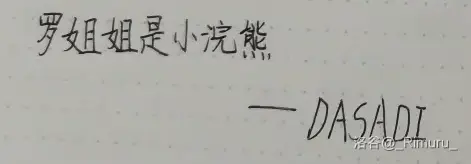 罗姐姐是小浣熊
— DASADI
洛谷@_Rimuru_